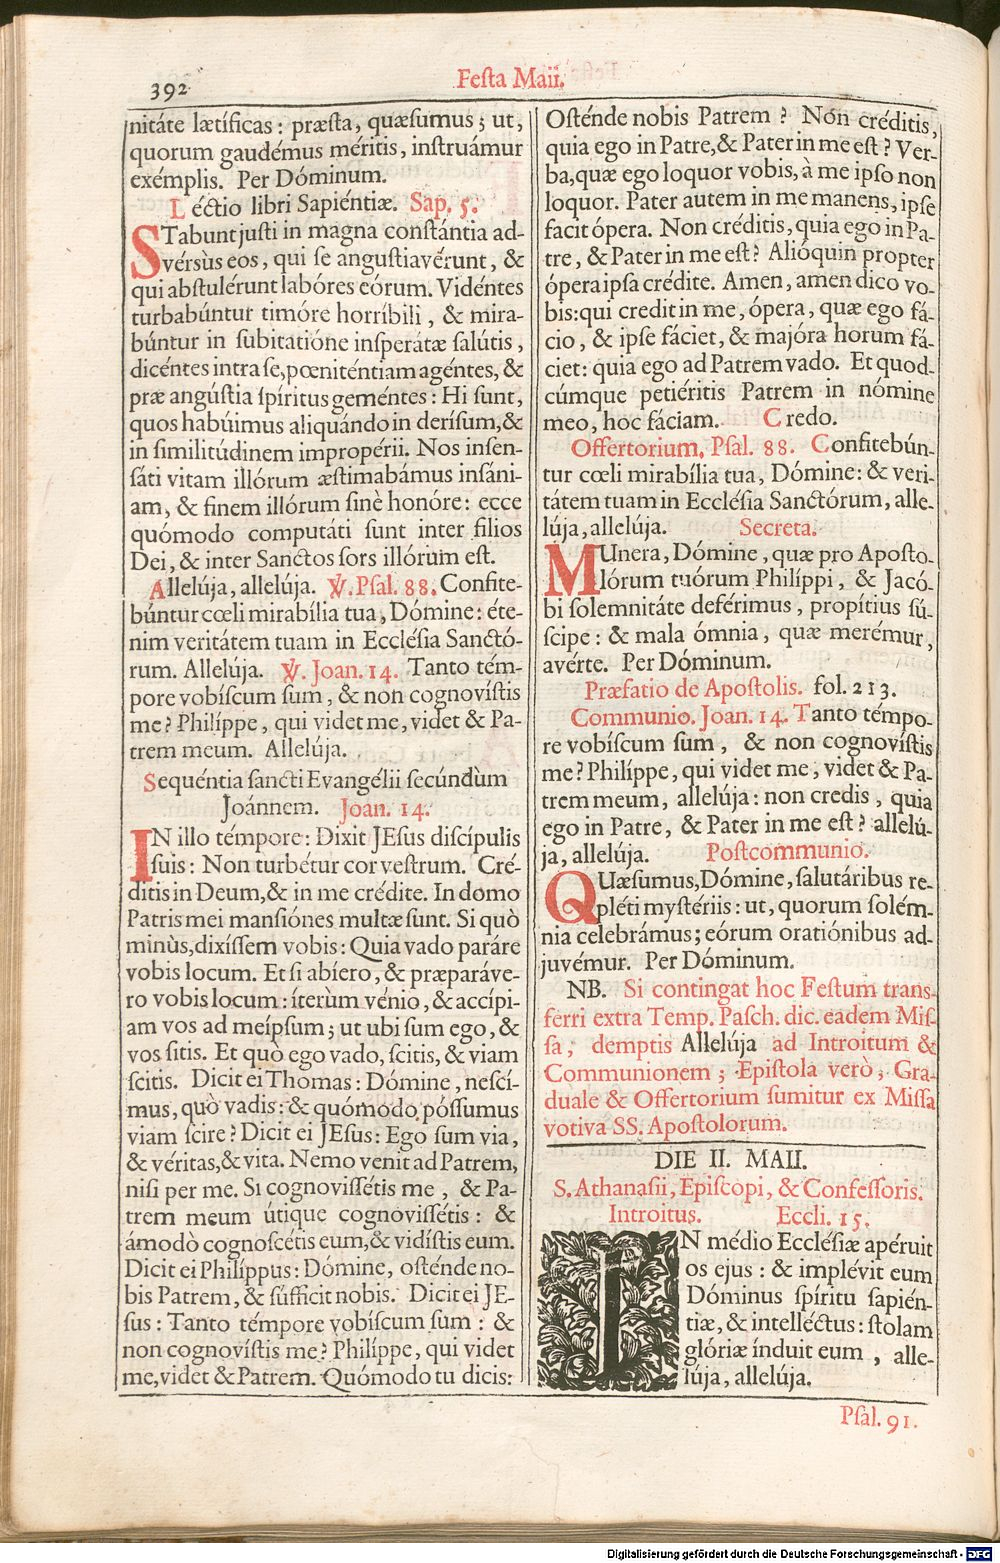 392
Festa Maii.
nitáte lætíficas: præsta, quæsumus; ut,
quorum gaudémus méritis, instruámur
exémplis. Per Dóminum.
Léctio libri Sapiéntiæ. Sap. 5.
STabunt justi in magna constántia ad-
versùs eos, qui se angustiavérunt, &
qui abstulérunt labóres eórum. Vidéntes
turbabúntur timóre horríbili, & mira-
búntur in subitatióne insperátæ salútis,
dicéntes intra se, pœniténtiam agéntes, &
præ angústia spíritus geméntes: Hi sunt,
quos habúimus aliquándo in derísum, &
in similitúdinem impropérii. Nos insen-
sáti vitam illórum æstimabámus insáni-
am, & finem illórum sinè honóre: ecce
quómodo computáti sunt inter filios
Dei, & inter Sanctos sors illórum est.
Allelúja, allelúja. ℣. Psal. 88. Confite-
búntur cœli mirabília tua, Dómine: éte-
nim veritátem tuam in Ecclésia Sanctó-
rum. Allelúja. ℣. Joan. 14. Tanto tém-
pore vobíscum sum, & non cognovístis
me? Philíppe, qui videt me, videt & Pa-
trem meum. Allelúja.
Sequéntia sancti Evangélii secúndùm
Joánnem. Joan. 14.
IN illo témpore: Dixit JEsus discípulis
suis: Non turbétur cor vestrum. Cré-
ditis in Deum, & in me crédite. In domo
Patris mei mansiónes multæ sunt. Si quò
minùs, dixíssem vobis: Quia vado paráre
vobis locum. Et si abíero, & præparáve-
ro vobis locum: íterùm vénio, & accípi-
am vos ad meípsum; ut ubi sum ego, &
vos sitis. Et quò ego vado, scitis, & viam
scitis. Dicit ei Thomas: Dómine, nescí-
mus, quò vadis: & quómodo póssumus
viam scire? Dicit ei JEsus: Ego sum via,
& véritas, & vita. Nemo venit ad Patrem,
nisi per me. Si cognovissétis me, & Pa-
trem meum útique cognovissétis: &
ámodò cognoscétis eum, & vidístis eum.
Dicit ei Philíppus: Dómine, osténde no-
bis Patrem, & súfficit nobis. Dicit ei JE-
sus: Tanto témpore vobíscum sum: &
non cognovístis me? Philíppe, qui videt
me, videt & Patrem. Quómodo tu dicis:
Osténde nobis Patrem? Non créditis,
quia ego in Patre, & Pater in me est? Ver-
ba, quæ ego loquor vobis, à me ipso non
loquor. Pater autem in me manens, ipse
facit ópera. Non créditis, quia ego in Pa-
tre, & Pater in me est? Alióquin propter
ópera ipsa crédite. Amen, amen dico vo-
bis: qui credit in me, ópera, quæ ego fá-
cio, & ipse fáciet, & majóra horum fá-
ciet: quia ego ad Patrem vado. Et quod-
cúmque petiéritis Patrem in nómine
meo, hoc fáciam. Credo.
Offertorium. Psal. 88. Confitebún-
tur cœli mirabília tua, Dómine: & veri-
tátem tuam in Ecclésia Sanctórum, alle-
lúja, allelúja. Secreta.
MUnera, Dómine, quæ pro Aposto-
lórum tuórum Philíppi, & Jacó-
bi solemnitáte deférimus, propítius sú-
scipe: & mala ómnia, quæ merémur,
avérte. Per Dóminum.
Præfatio de Apostolis. fol. 213.
Communio. Joan. 14. Tanto témpo-
re vobíscum sum, & non cognovístis
me? Philíppe, qui videt me, videt & Pa-
trem meum, allelúja: non credis, quia
ego in Patre, & Pater in me est? allelú-
ja, allelúja. Postcommunio.
QUæsumus, Dómine, salutáribus re-
pléti mystériis: ut, quorum solém-
nia celebrámus; eórum oratiónibus ad-
juvémur. Per Dóminum.
NB. Si contingat hoc Festum trans-
ferri extra Temp. Pasch. dic. eadem Mis-
sa, demptis Allelúja ad Introitum &
Communionem; Epistola verò, Gra-
duale & Offertorium sumitur ex Missa
votiva SS. Apostolorum.
DIE II. MAII.
S. Athanasii, Episcopi, & Confessoris.
Introitus. Eccli. 15.
IN médio Ecclésiæ apéruit
os ejus: & implévit eum
Dóminus spíritu sapién-
tiæ, & intelléctus: stolam
glóriæ índuit eum, alle-
lúja, allelúja.
Psal. 91.
Digitalisierung gefördert durch die Deutsche Forschungsgemeinschaft - DFG